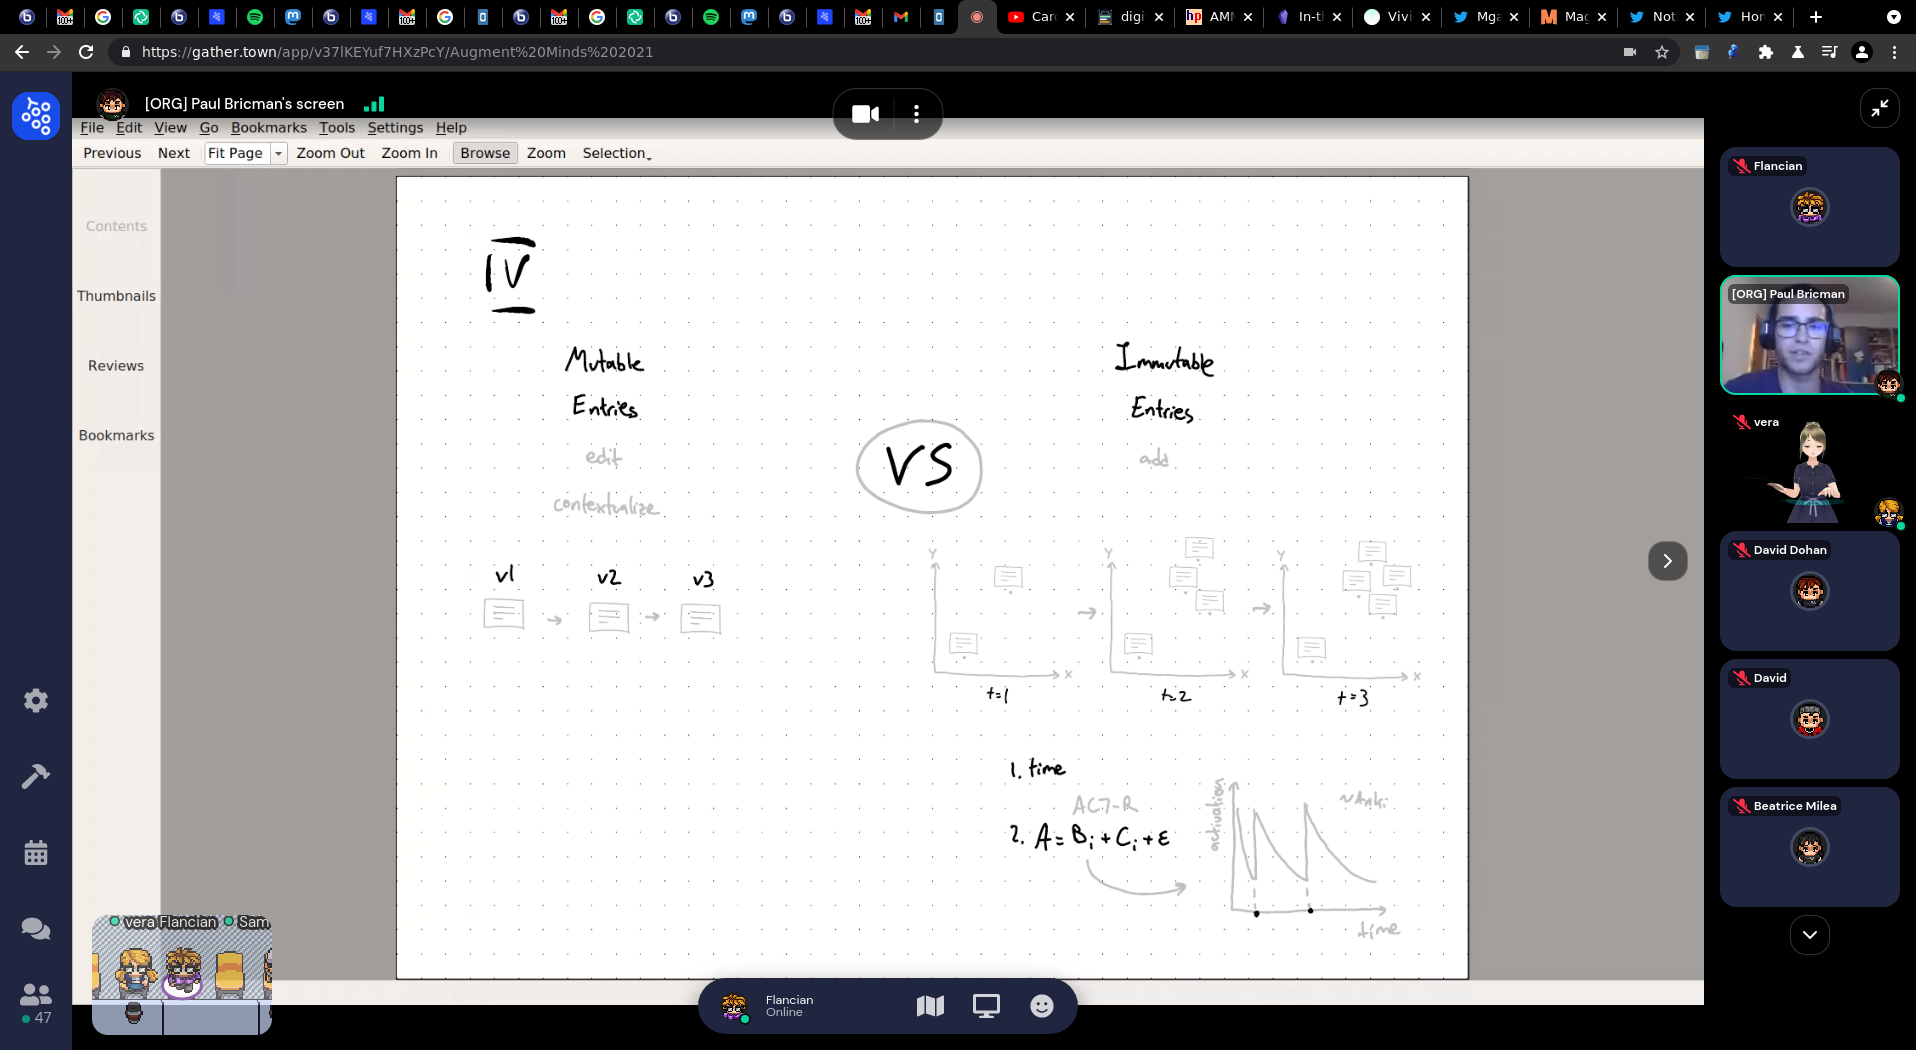 Carc
digi
AMM
In-tl
Vivi
Mga
Mag
Not
Hon
https://gather.town/app/v37lKEYuf7HXzPcY/Augment%20Minds%202021
[ORG] Paul Bricman's screen
File Edit View Go Bookmarks Tools Settings Help
Previous Next Fit Page Zoom Out Zoom In Browse Zoom Selection
Contents
Thumbnails
Reviews
Bookmarks
IV
Mutable
Entries
edit
contextualize
v1 v2 v3
VS
Immutable
Entries
add
Y Y Y
x x x
t=1 t=2 t=3
1. time
ACT-R
2. A = Bi + Ci + ε
activation
~Anki
time
Flancian
[ORG] Paul Bricman
vera
David Dohan
David
Beatrice Milea
vera Flancian Sam
47
Flancian
Online